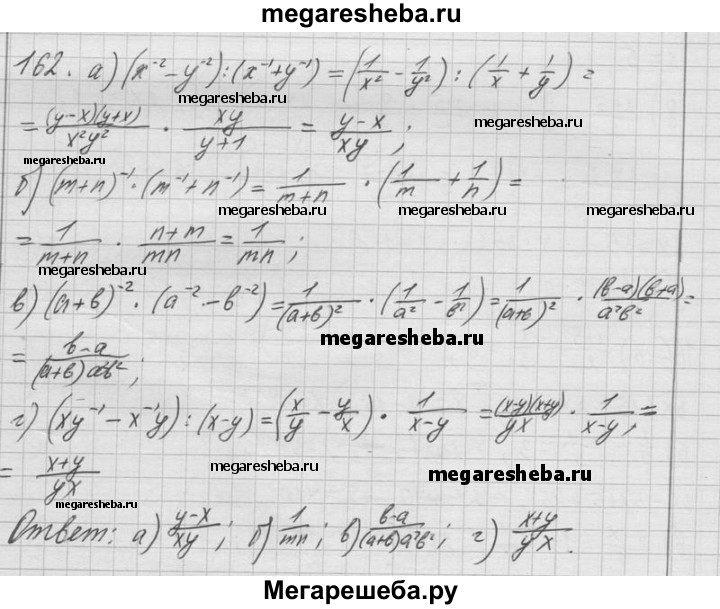 megaresheba.ru
162. а) (x⁻² - y⁻²) : (x⁻¹ + y⁻¹) = (1/x² - 1/y²) : (1/x + 1/y) =
megaresheba.ru
= (y-x)(y+x)/x²y² · xy/y+1 = y-x/xy ;
megaresheba.ru megaresheba.ru megaresheba.ru
б) (m+n)⁻¹ · (m⁻¹ + n⁻¹) = 1/m+n · (1/m + 1/n) =
megaresheba.ru megaresheba.ru megaresheba.ru
= 1/m+n · n+m/mn = 1/mn ;
megaresheba.ru
в) (a+b)⁻² · (a⁻² - b⁻²) = 1/(a+b)² · (1/a² - 1/b²) = 1/(a+b)² · (b-a)(b+a)/a²b² =
megaresheba.ru
= b-a/(a+b)a²b² ;
megaresheba.ru
г) (xy⁻¹ - x⁻¹y) : (x-y) = (x/y - y/x) · 1/x-y = (x-y)(x+y)/yx · 1/x-y =
= x+y/yx
megaresheba.ru megaresheba.ru
megaresheba.ru
Ответ: а) y-x/xy ; б) 1/mn ; в) b-a/(a+b)a²b² ; г) x+y/yx .
Мегарешеба.ру